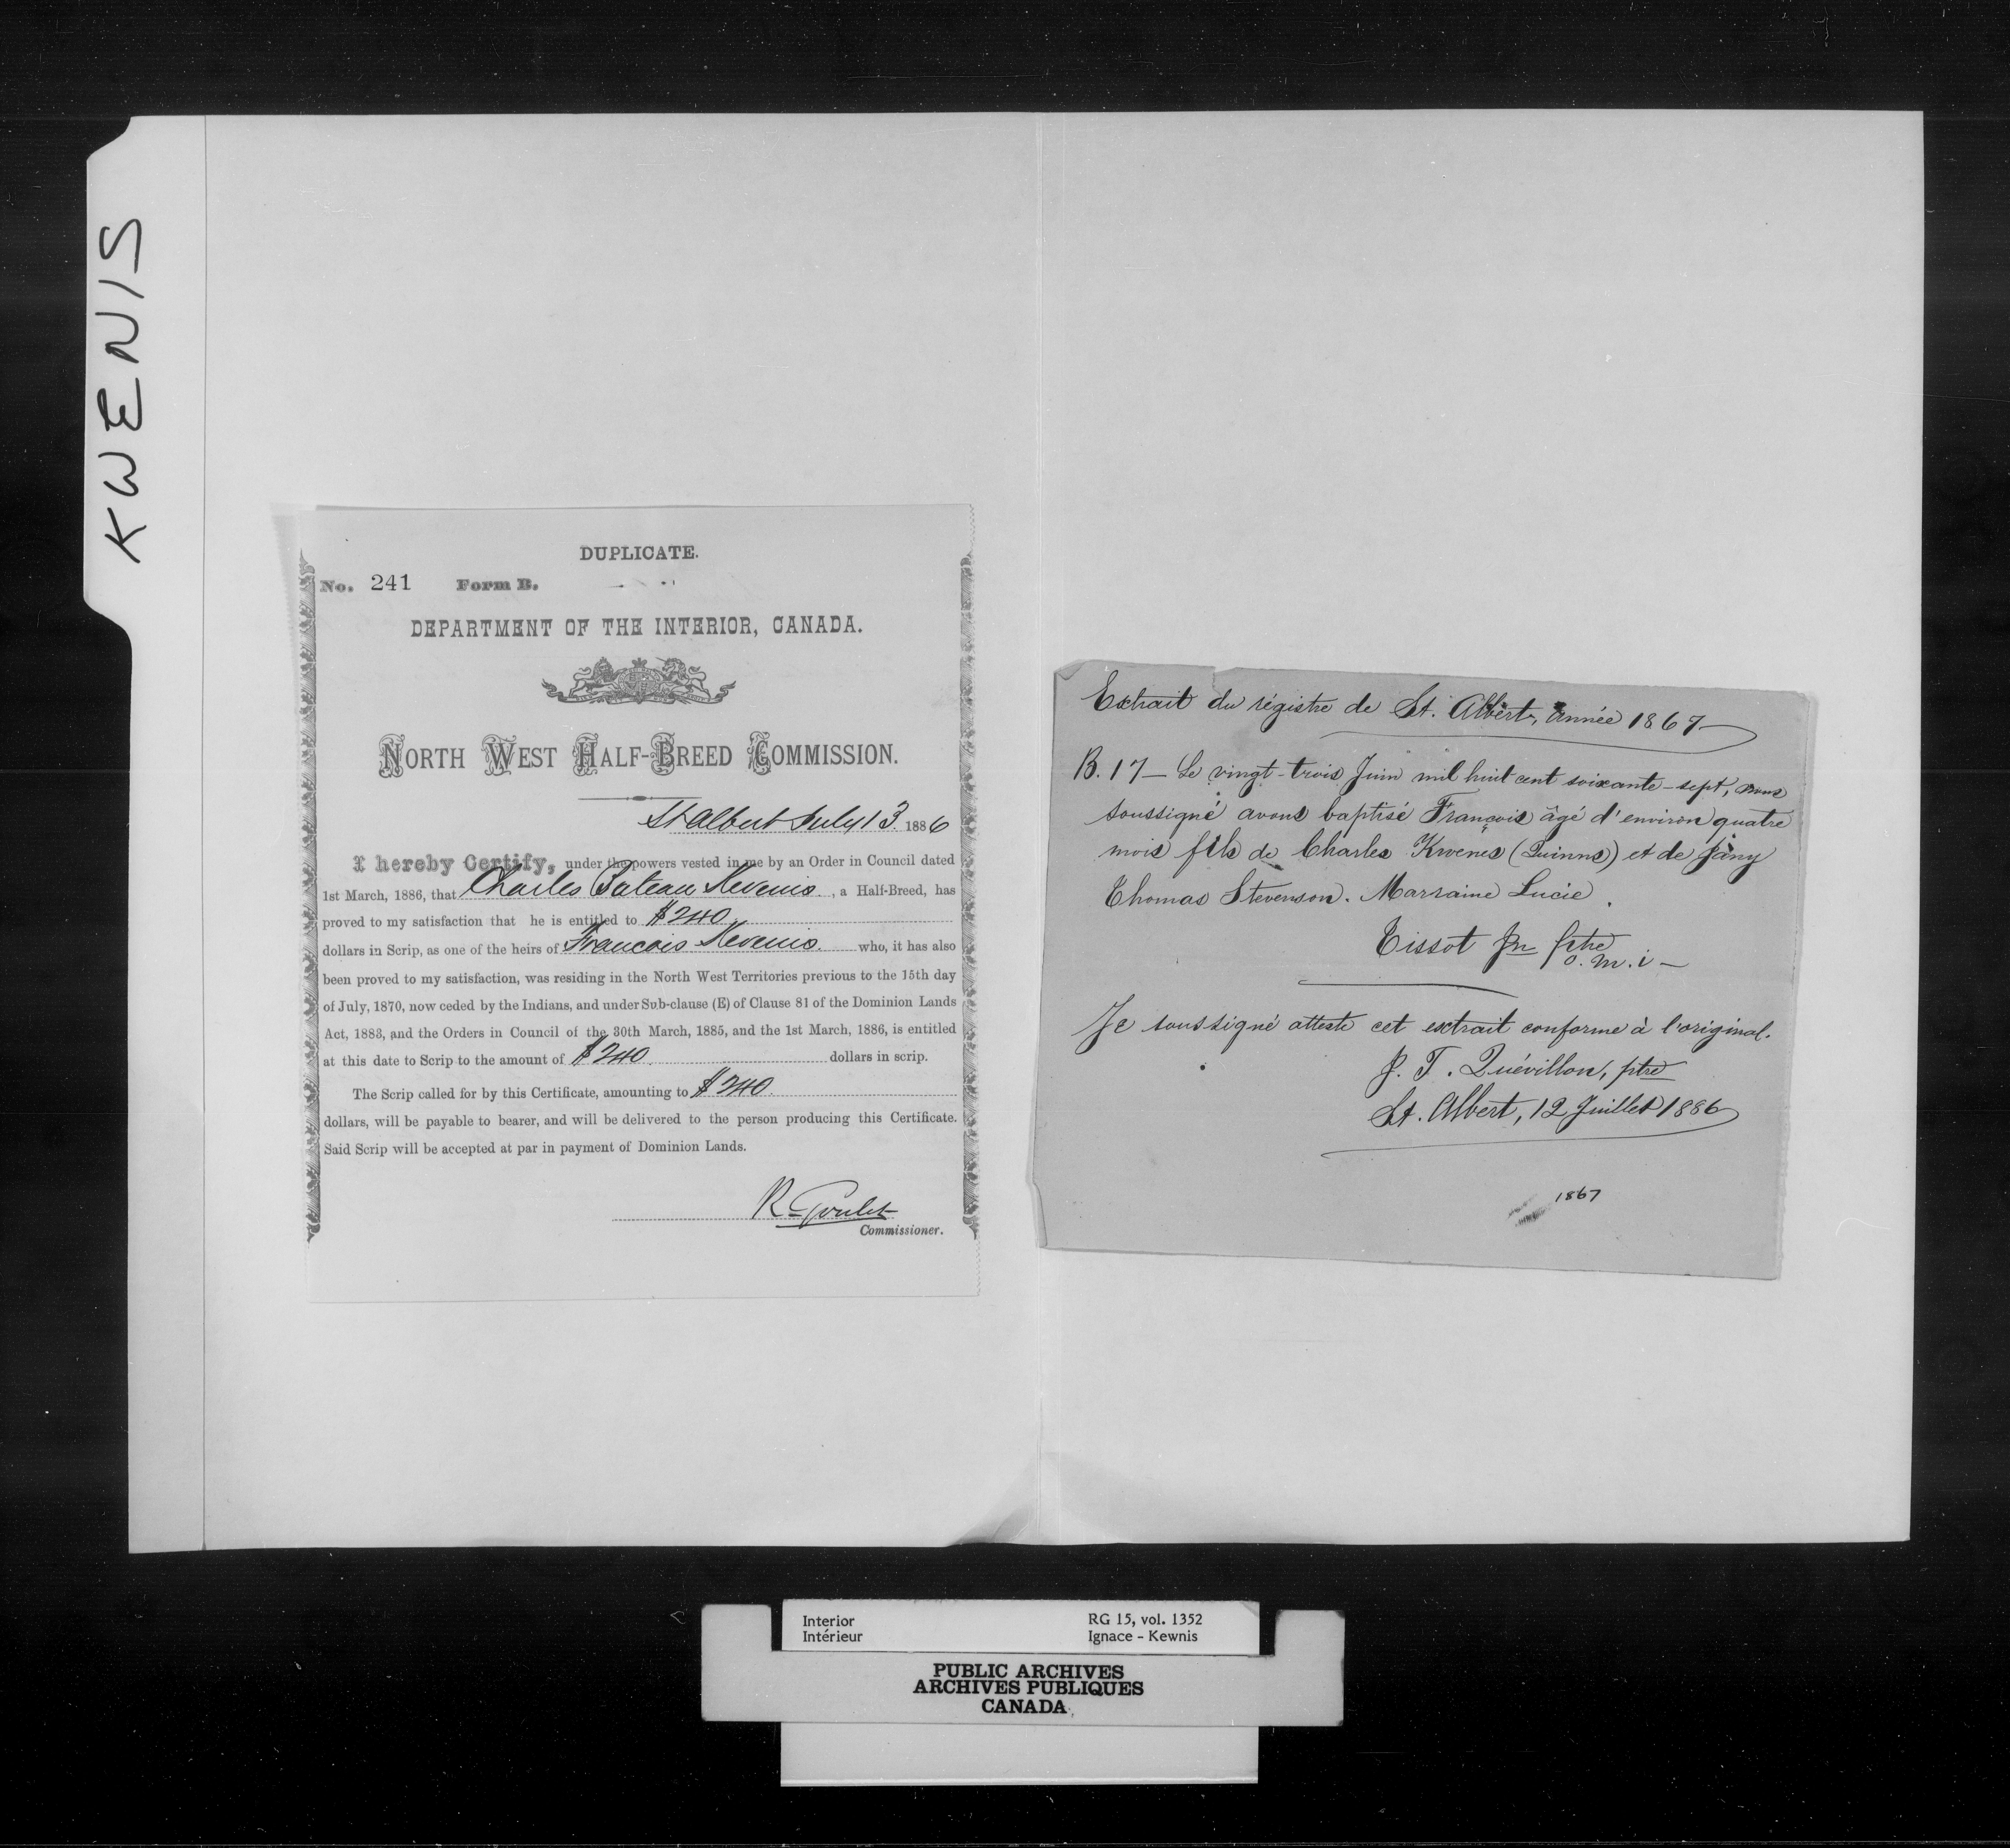 KWENIS
DUPLICATE.
No. 241 Form B.
DEPARTMENT OF THE INTERIOR, CANADA.
NORTH WEST HALF-BREED COMMISSION.
St Albert July 13 1886
I hereby Certify, under the powers vested in me by an Order in Council dated
1st March, 1886, that Charles Bateau Kevenis, a Half-Breed, has
proved to my satisfaction that he is entitled to $240
dollars in Scrip, as one of the heirs of Francois Kevenis who, it has also
been proved to my satisfaction, was residing in the North West Territories previous to the 15th day
of July, 1870, now ceded by the Indians, and under Sub-clause (E) of Clause 81 of the Dominion Lands
Act, 1883, and the Orders in Council of the 30th March, 1885, and the 1st March, 1886, is entitled
at this date to Scrip to the amount of $240 dollars in scrip.
The Scrip called for by this Certificate, amounting to $240
dollars, will be payable to bearer, and will be delivered to the person producing this Certificate.
Said Scrip will be accepted at par in payment of Dominion Lands.
R Goulet
Commissioner.
Extrait du régistre de St. Albert, année 1867
B. 17 — Le vingt-trois Juin mil huit cent soixante-sept, nous
soussigné avons baptisé François âgé d'environ quatre
mois fils de Charles Kwenes (Quinns) et de Jany
Thomas Stevenson. Marraine Lucie.
Tissot Jn ptre
o.m.i —
Je soussigné atteste cet extrait conforme à l'original.
J. T. Quévillon, ptre
St. Albert, 12 Juillet 1886
1867
Interior
Intérieur
RG 15, vol. 1352
Ignace - Kewnis
PUBLIC ARCHIVES
ARCHIVES PUBLIQUES
CANADA